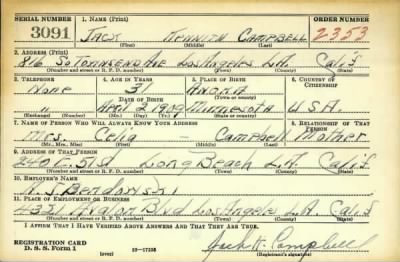 SERIAL NUMBER 1. NAME (Print) ORDER NUMBER
3091 Jack Kenneth Campbell 2353
(First) (Middle) (Last)
2. ADDRESS (Print)
816 So Townsend Ave Los Angeles L.A. Calif
(Number and street or R. F. D. number) (Town) (County) (State)
3. TELEPHONE 4. AGE IN YEARS 5. PLACE OF BIRTH 6. COUNTRY OF CITIZENSHIP
None 31 Anoka
DATE OF BIRTH (Town or county)
April 2 1909 Minnesota U.S.A.
(Exchange) (Number) (Mo.) (Day) (Yr.) (State or country)
7. NAME OF PERSON WHO WILL ALWAYS KNOW YOUR ADDRESS 8. RELATIONSHIP OF THAT PERSON
Mrs. Celia Campbell Mother
(Mr., Mrs., Miss) (First) (Middle) (Last)
9. ADDRESS OF THAT PERSON
240 E. 51st Long Beach L.A. Calif.
(Number and street or R. F. D. number) (Town) (County) (State)
10. EMPLOYER'S NAME
11. PLACE OF EMPLOYMENT OR BUSINESS
4331 Avalon Blvd Los Angeles L.A. Calif
(Number and street or R. F. D. number) (Town) (County) (State)
I AFFIRM THAT I HAVE VERIFIED ABOVE ANSWERS AND THAT THEY ARE TRUE.
REGISTRATION CARD
D. S. S. Form 1 (over) 16—17105 Jack K. Campbell
(Registrant's signature)